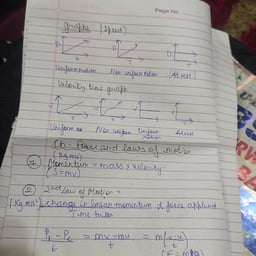 Page No.
Graphs (speed)
D D D
t t t
Uniform motion Non uniform motion (At rest)
Velocity time graph
t t t
Uniform Non-uniform Uniform At rest
Ch. force and laws of motion
(Kgm/s)
① Momentum = mass x velocity
② 2nd law of Motion =
change in linear momentum ∝ force applied
Time taken
t = mv-mu = m(v-u)
t t